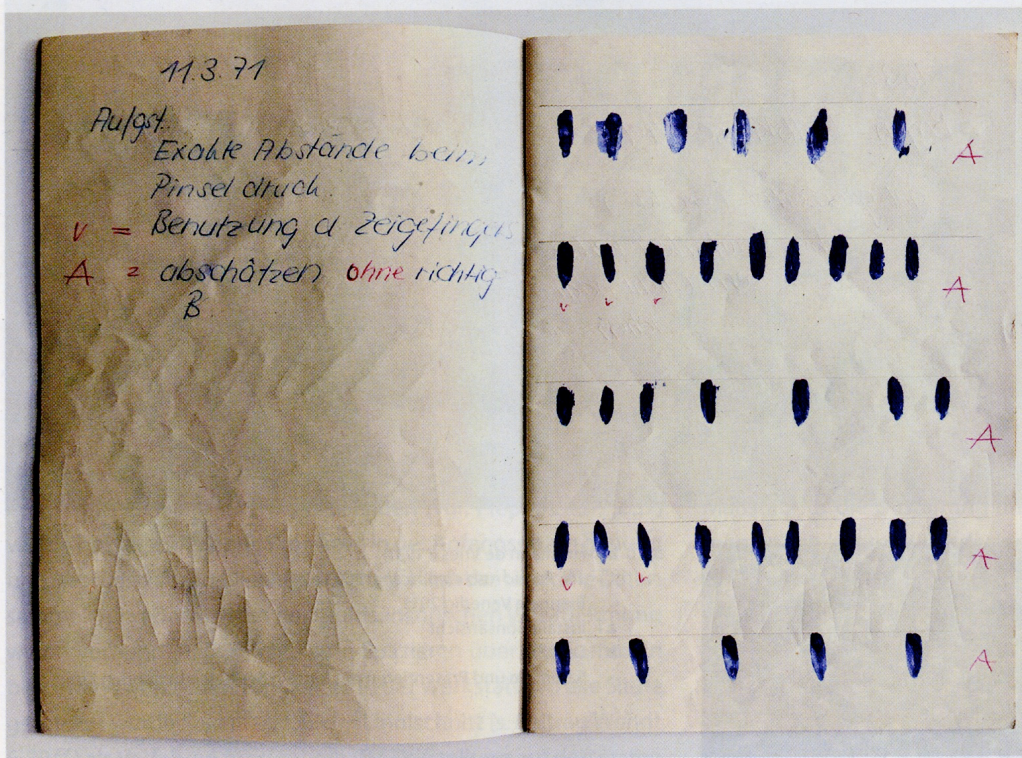 11.3.71
Aufgst.
Exakte Abstände beim
Pinseldruck.
v = Benutzung d Zeigefingers
A = abschätzen ohne richtig
B
A
A
v v v
A
A
v v
A